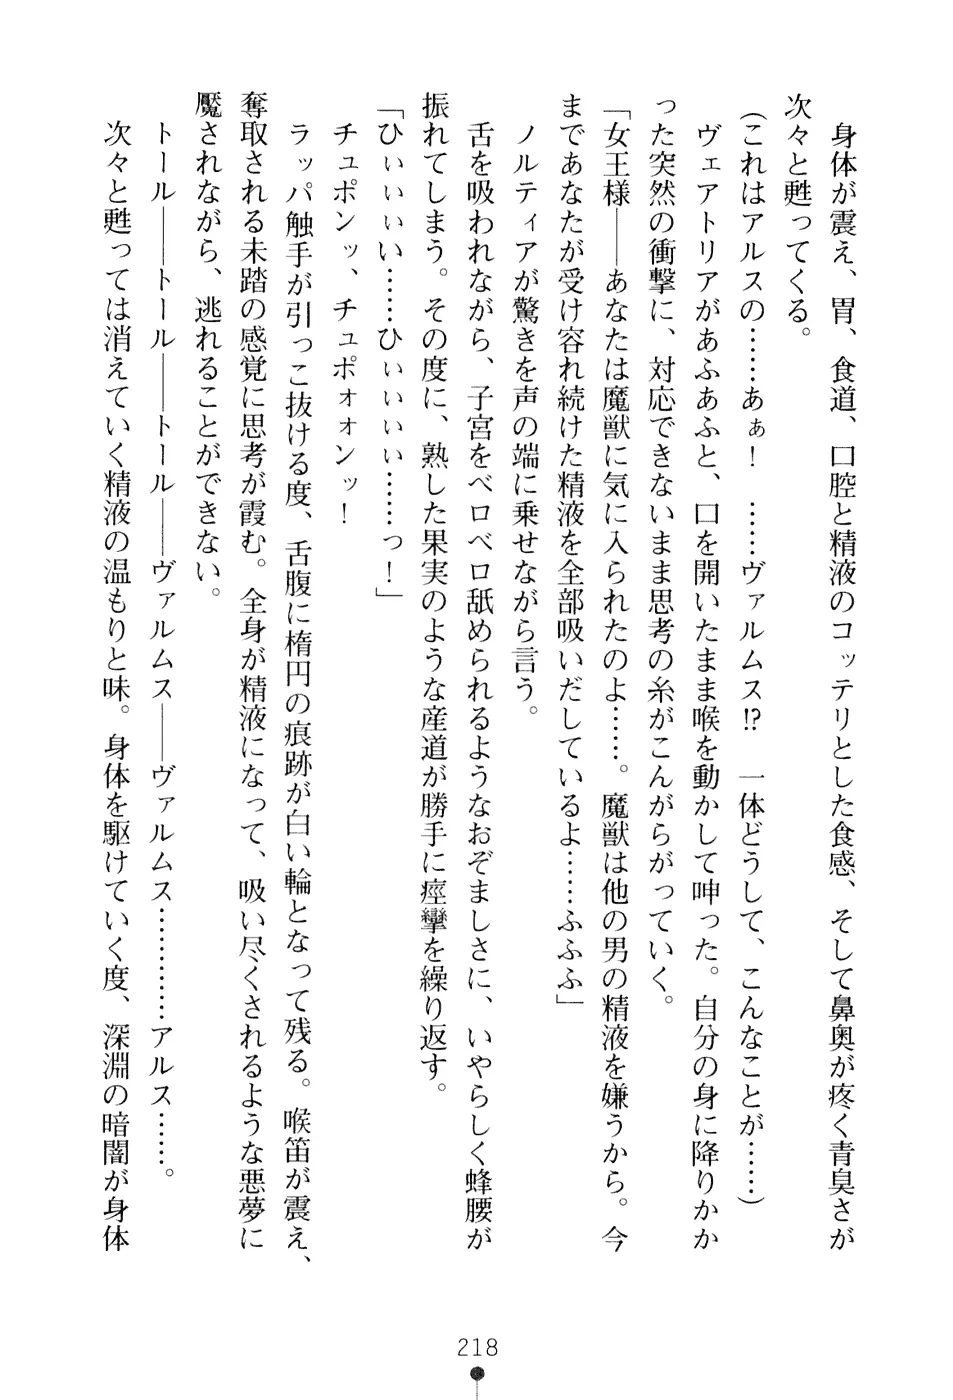 身体が震え、胃、食道、口腔と精液のコッテリとした食感、そして鼻奥が疼く青臭さが
次々と甦ってくる。
(これはアルスの……あぁ！　……ヴァルムス!?　一体どうして、こんなことが……)
ヴェアトリアがあふあふと、口を開いたまま喉を動かして呻った。自分の身に降りかか
った突然の衝撃に、対応できないまま思考の糸がこんがらがっていく。
「女王様――あなたは魔獣に気に入られたのよ……。魔獣は他の男の精液を嫌うから。今
まであなたが受け容れ続けた精液を全部吸いだしているよ……ふふふ」
ノルティアが驚きを声の端に乗せながら言う。
舌を吸われながら、子宮をベロベロ舐められるようなおぞましさに、いやらしく蜂腰が
振れてしまう。その度に、熟した果実のような産道が勝手に痙攣を繰り返す。
「ひぃぃぃい……ひぃぃぃぃ……っ！」
チュポンッ、チュポォォンッ！
ラッパ触手が引っこ抜ける度、舌腹に楕円の痕跡が白い輪となって残る。喉笛が震え、
奪取される未踏の感覚に思考が霞む。全身が精液になって、吸い尽くされるような悪夢に
魘されながら、逃れることができない。
トール――トール――トール――ヴァルムス――ヴァルムス…………アルス……。
次々と甦っては消えていく精液の温もりと味。身体を駆けていく度、深淵の暗闇が身体
218